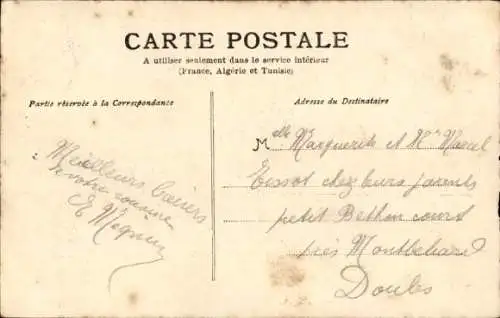 CARTE POSTALE
A utiliser seulement dans le service intérieur
(France, Algérie et Tunisie)
Partie réservée à la Correspondance
Adresse du Destinataire
Meilleurs baisers
de votre cousine
E
Melle Marguerite et Mr Marcel
Tissot chez leurs parents
petit Bethoncourt
près Montbeliard
Doubs